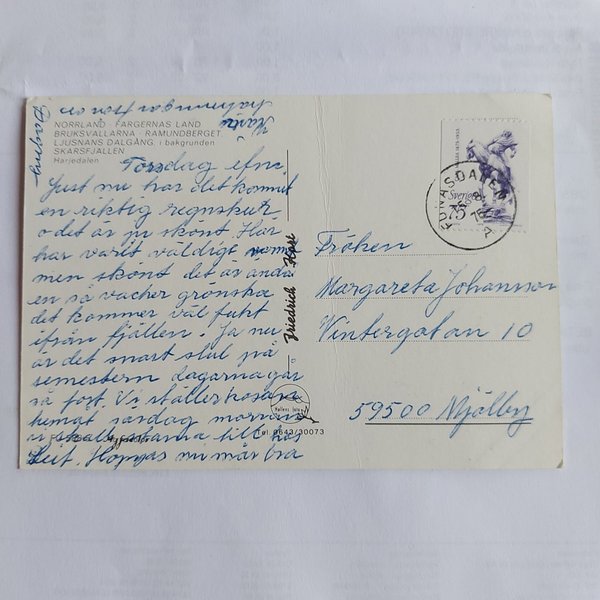 NORRLAND - FÄRGERNAS LAND
BRUKSVALLARNA - RAMUNDBERGET
LJUSNANS DALGÅNG, i bakgrunden
SKARSFJÄLLEN
Härjedalen
Torsdag efm.
Just nu har det kommit
en riktig regnskur
o det är ju skönt. Här
har varit väldigt varmt
men skönt det är ändå
en så vacker grönska
det kommer väl fukt
ifrån fjällen. Ja nu
är det snart slut på
semestern dagarna går
så fort. Vi ställer kosan
hemåt söndag morron
vi skall stanna till hos
Leif. Hoppas nu mår bra
från oss
Dagny
Friedrich Karl
Tel. 0643/30073
Sverige
75
FUNÄSDALEN
Fröken
Margareta Johansson
Vintergatan 10
59500 Mjölby